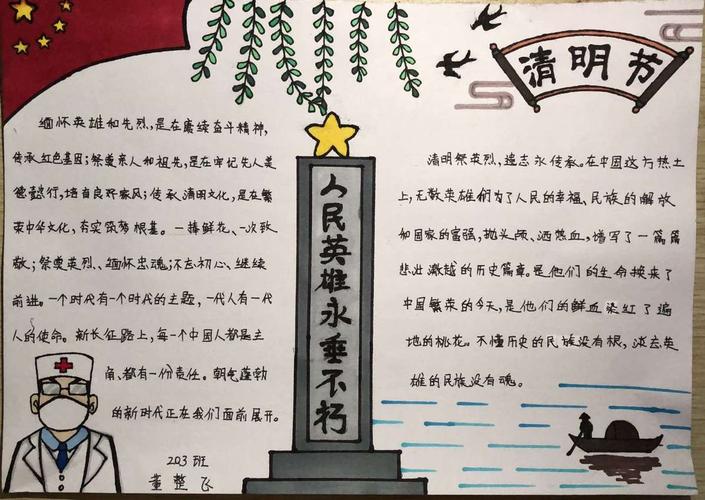 清明节
缅怀英雄和先烈,是在赓续奋斗精神,
传承红色基因;祭奠亲人和祖先,是在牢记先人美
德懿行,培育良好家风;传承清明文化,是在繁
荣中华文化,夯实筑梦根基。一捧鲜花、一次致
敬;祭奠英烈、缅怀忠魂;不忘初心、继续
前进。一个时代有一个时代的主题,一代人有一代
人的使命。新长征路上,每一个中国人都是主
角、都有一份责任。朝气蓬勃
的新时代正在我们面前展开。
203班
董整飞
人民英雄永垂不朽
清明祭英烈,遗志永传承。在中国这片热土
上,无数英雄们为了人民的幸福、民族的解放
和国家的富强,抛头颅、洒热血,谱写了一篇篇
悲壮激越的历史篇章。是他们的生命换来了
中国繁荣的今天,是他们的鲜血染红了遍
地的桃花。不懂历史的民族没有根,淡忘英
雄的民族没有魂。